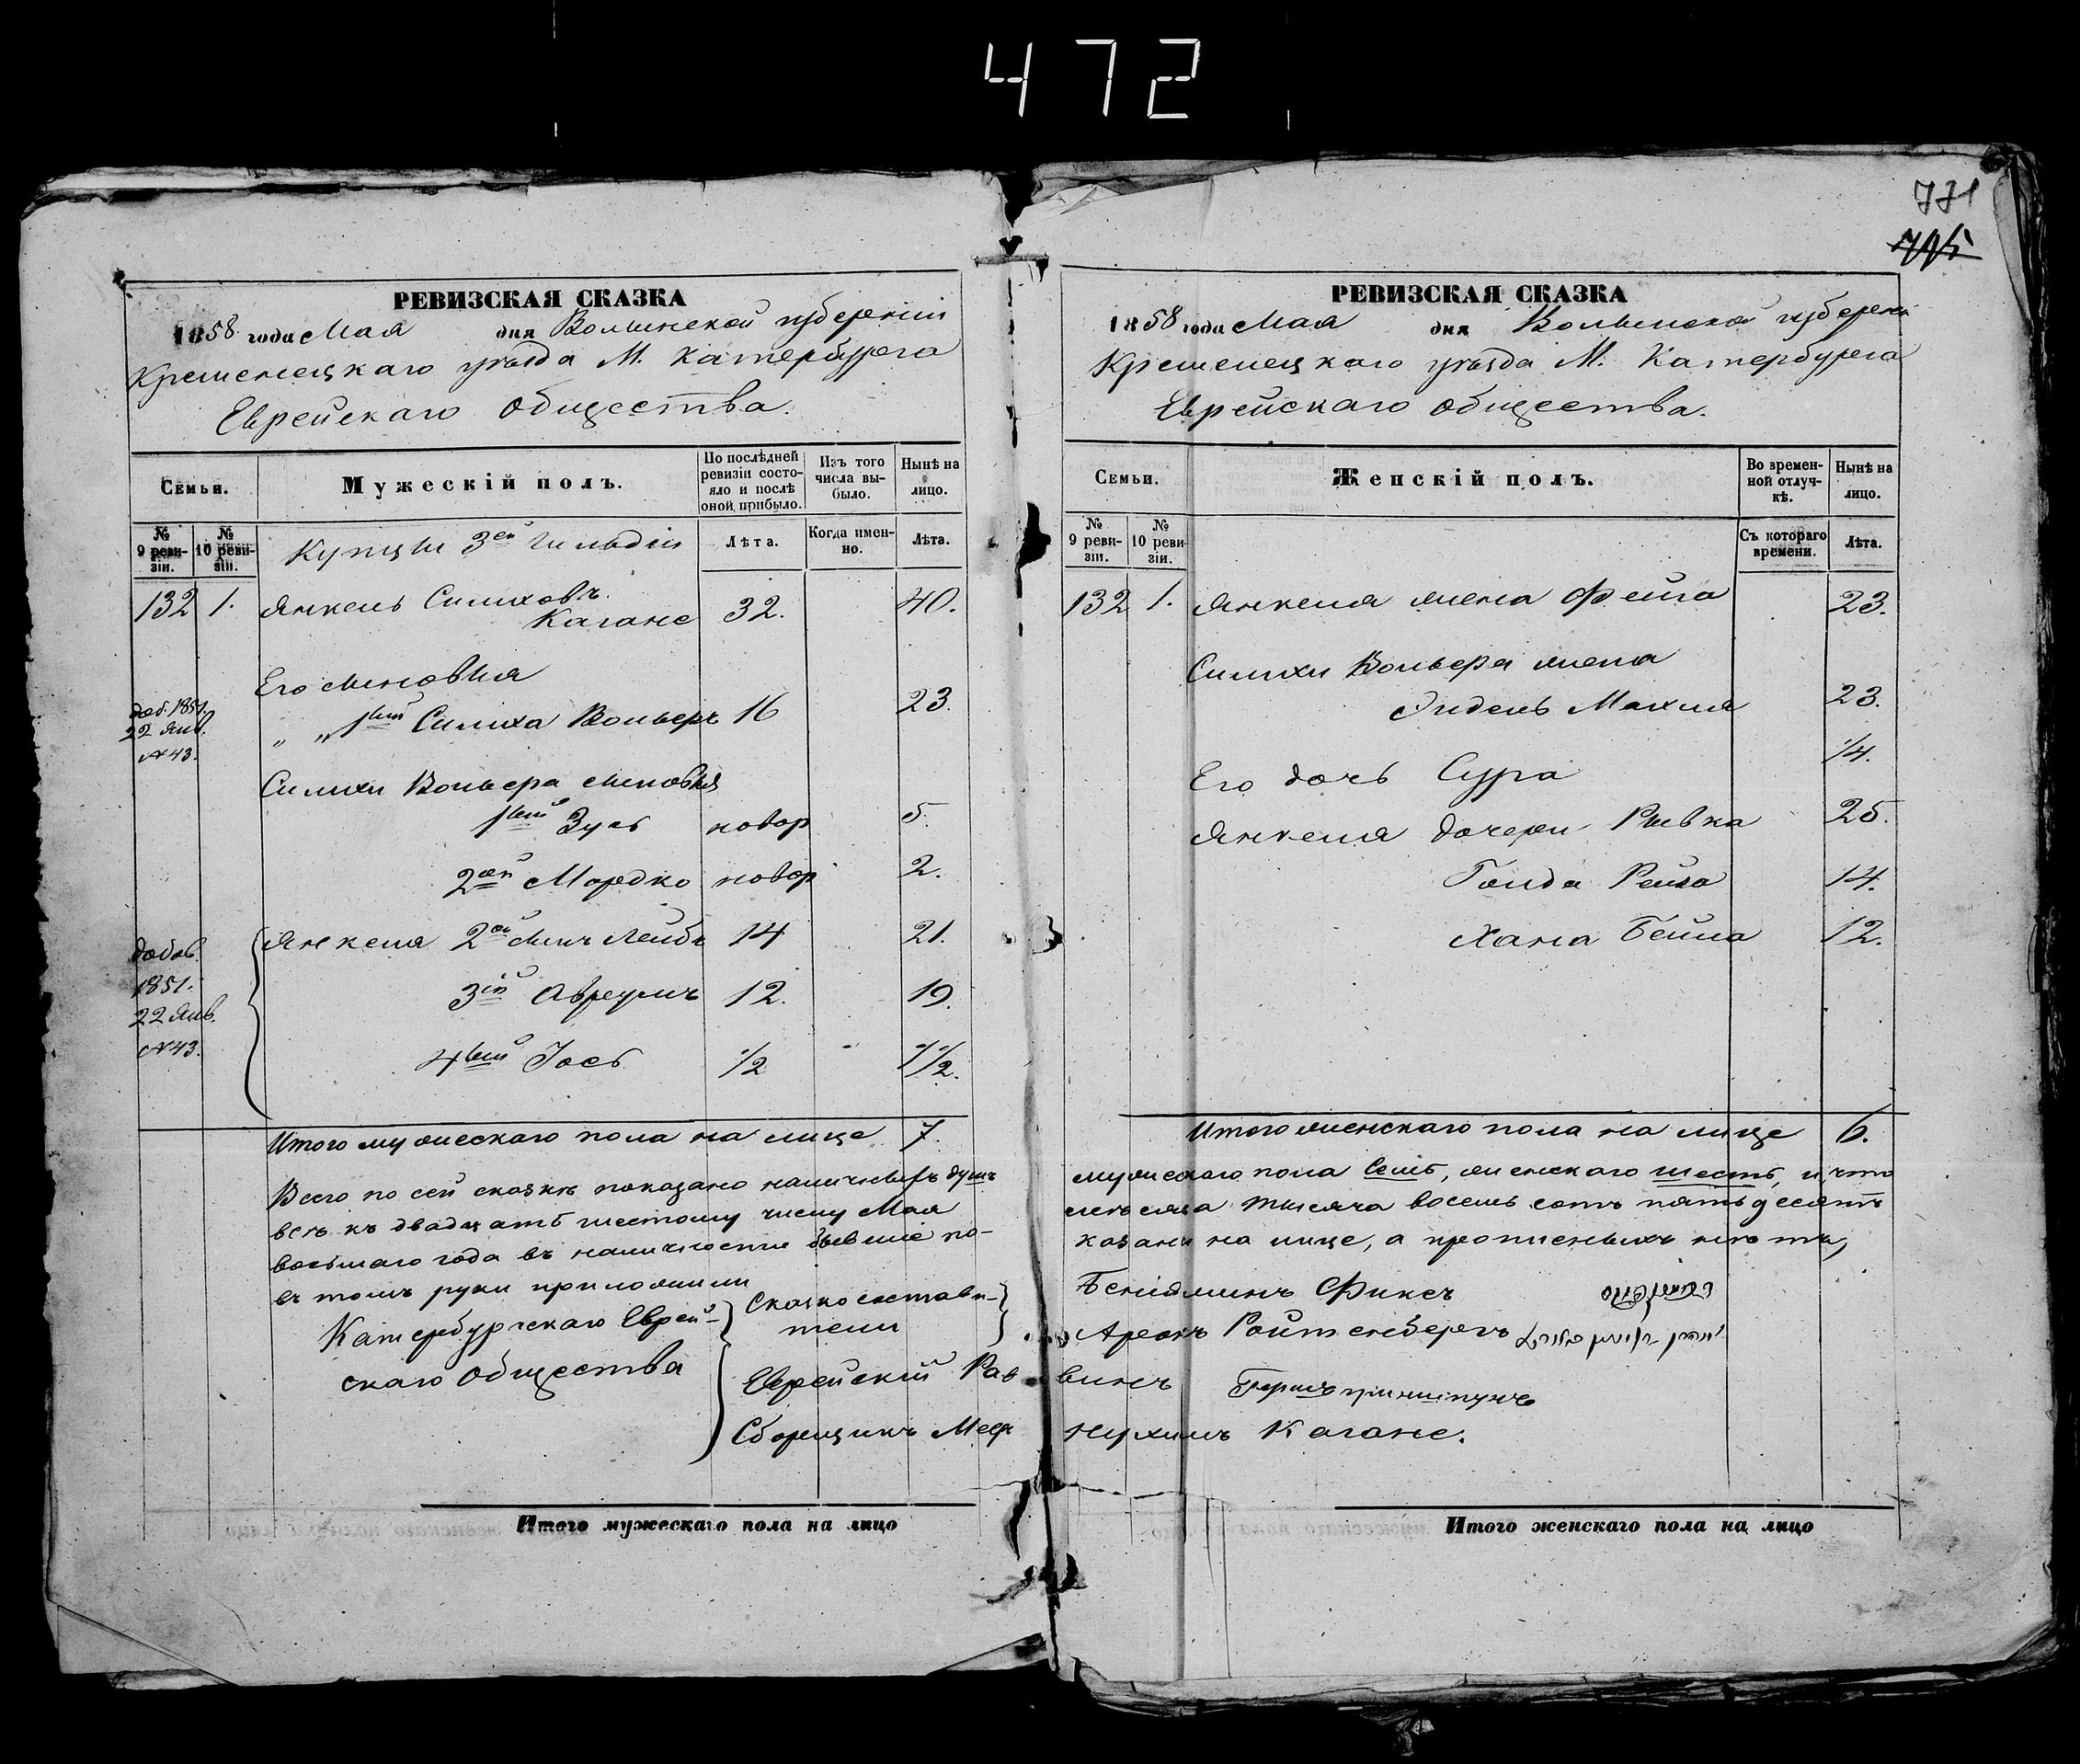 472
771
РЕВИЗСКАЯ СКАЗКА
1858 года Мая дня Волынской губернии
Кременецкаго уезда М. Катербурга
Еврейскаго Общества.
Семьи.
Мужескій полъ.
По послѣдней ревизіи состояло и послѣ оной прибыло.
Изъ того числа выбыло.
Нынѣ на лицо.
№ 9 ревизіи.
№ 10 ревизіи.
Купцы 3ей Гильдіи
Лѣта.
Когда именно.
Лѣта.
132 1. Янкель Симховъ
Каганъ 32. 40.
Его сыновья
доб. 1851.
22 Янв.
№ 43.
„ „ 1ый Симха Вольеръ 16 23.
Симхи Вольера сыновья
1ый Зусь новор 5.
2ой Мордко новор 2.
добав.
1851.
22 Янв.
№ 43.
Янкеля 2ой сынъ Лейбъ 14 21.
3ій Аврумъ 12. 19.
4ый Іось 1/2 7 1/2.
Итого мужескаго пола на лице 7.
Всего по сей сказке показано наличныхъ душъ
всѣ къ двадцать шестому числу Мая
восьмаго года въ наличности бывшіе по-
въ томъ руки приложили
Катербургскаго Еврей-
скаго Общества
Сказкосостави-
тели
Еврейскій Рав
Сборщикъ Меер
Итого мужескаго пола на лицо
РЕВИЗСКАЯ СКАЗКА
1858 года Мая дня Волынской губерніи
Кременецкаго уезда М. Катербурга
Еврейскаго Общества.
Семьи.
Женскій полъ.
Во временной отлучкѣ.
Нынѣ на лицо.
№ 9 ревизіи.
№ 10 ревизіи.
Съ котораго времени.
Лѣта.
132 1. Янкеля жена Фейга 23.
Симхи Вольера жена
Эидель Махля 23.
Его дочь Сура 1/4.
Янкеля дочери Рывка 25.
Голда Рейза 14.
Хана Бейла 12.
Итого женскаго пола на лице 6.
мужескаго пола Семь, женскаго шесть, и что
месяца тысяча восемь сотъ пятьдесятъ
казаны на лице, а прописныхъ нѣтъ,
Беніяминъ Фиксъ
Аронъ Ройтенбергъ
винъ
Нухимъ Каганъ.
Итого женскаго пола на лицо